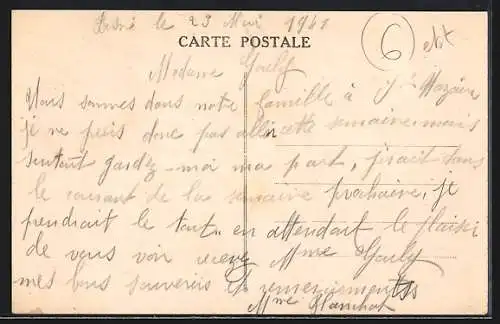 le 23 Mai 1941
CARTE POSTALE
6
Madame Gouly
Nous sommes dans notre famille à St Nazaire
je ne puis donc pas aller cette semaine mais
surtout gardez-moi ma part, j'irait dans
le courant de la semaine prochaine, je
prendrait le tout en attendant le plaisir
de vous voir recevez Mme Gouly
mes bons souvenirs et remerciements
Mme Blanchot